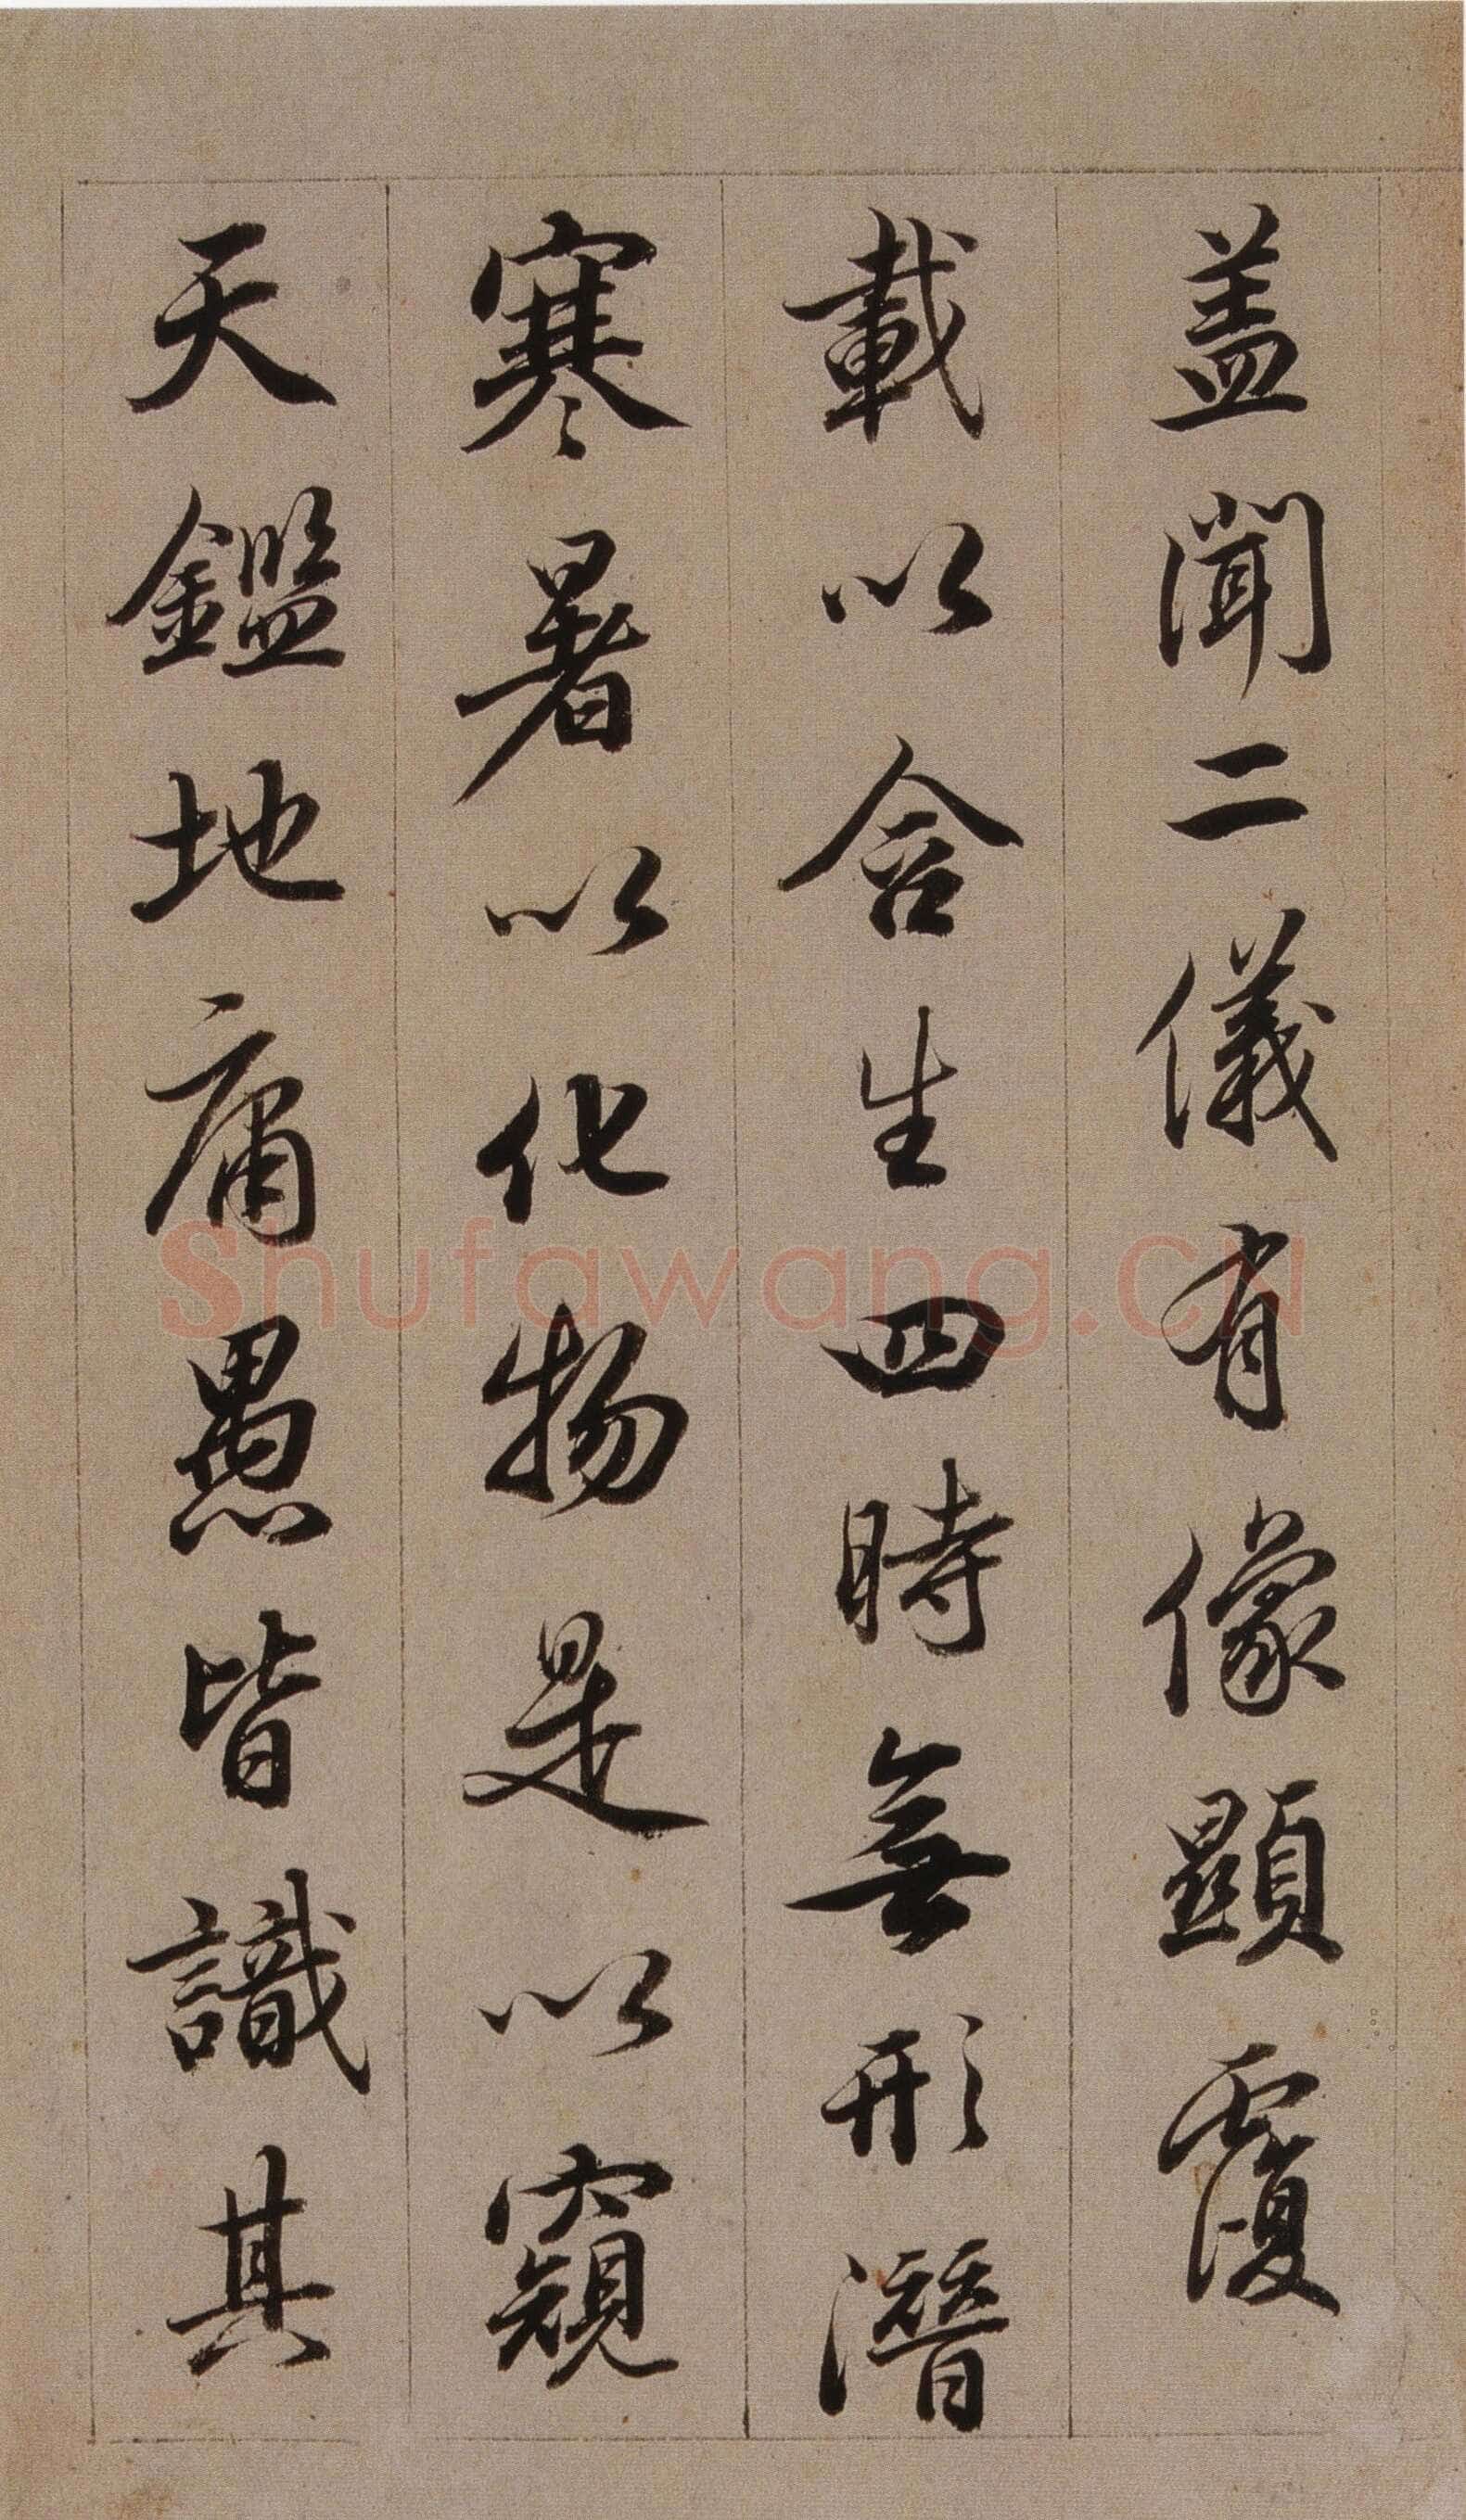 盖聞二儀有像顯覆
載以含生四時無形潛
寒暑以化物是以窺
天鑑地庸愚皆識其
Shufawang.CN